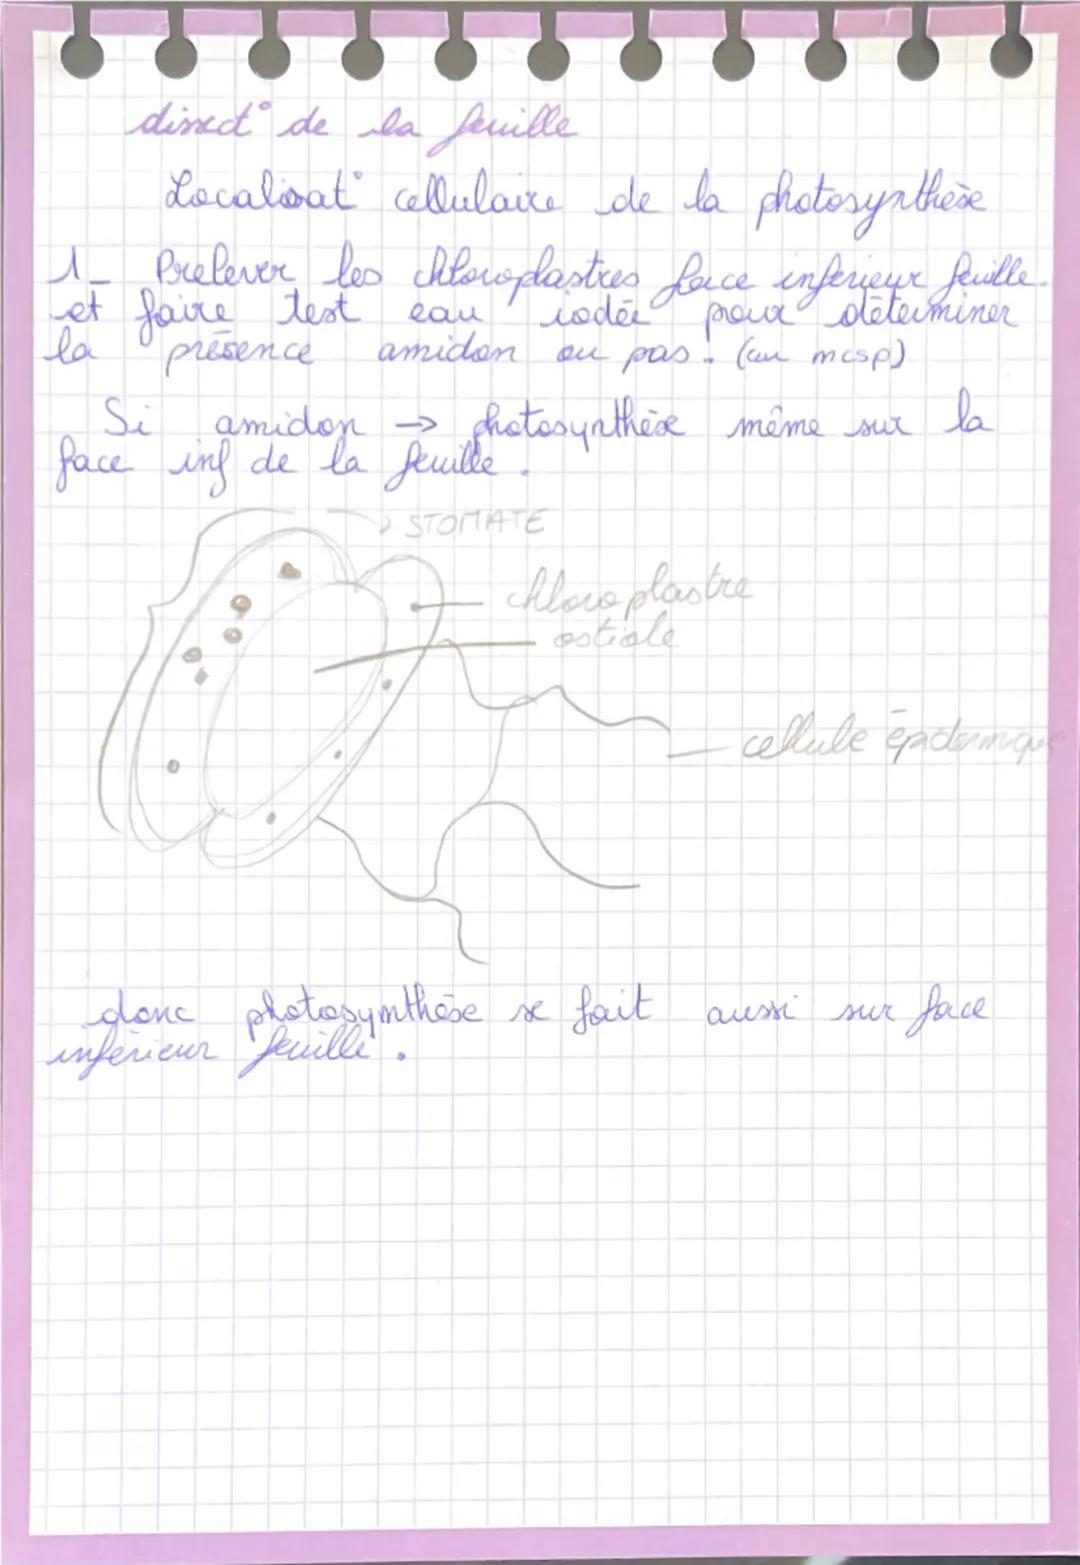 dissect° de la feuille
Localisat° cellulaire de la photosynthèse
1_ Prelever les chloroplastres face inferieur feuille.
et faire test eau iodée pour déterminer
la présence amidon ou pas. (au mcsp)
Si amidon → photosynthèse même sur la
face inf de la feuille.
STOMATE
chloroplastre
ostiole
cellule épidermique
donc photosynthèse se fait aussi sur face
inférieur feuille.